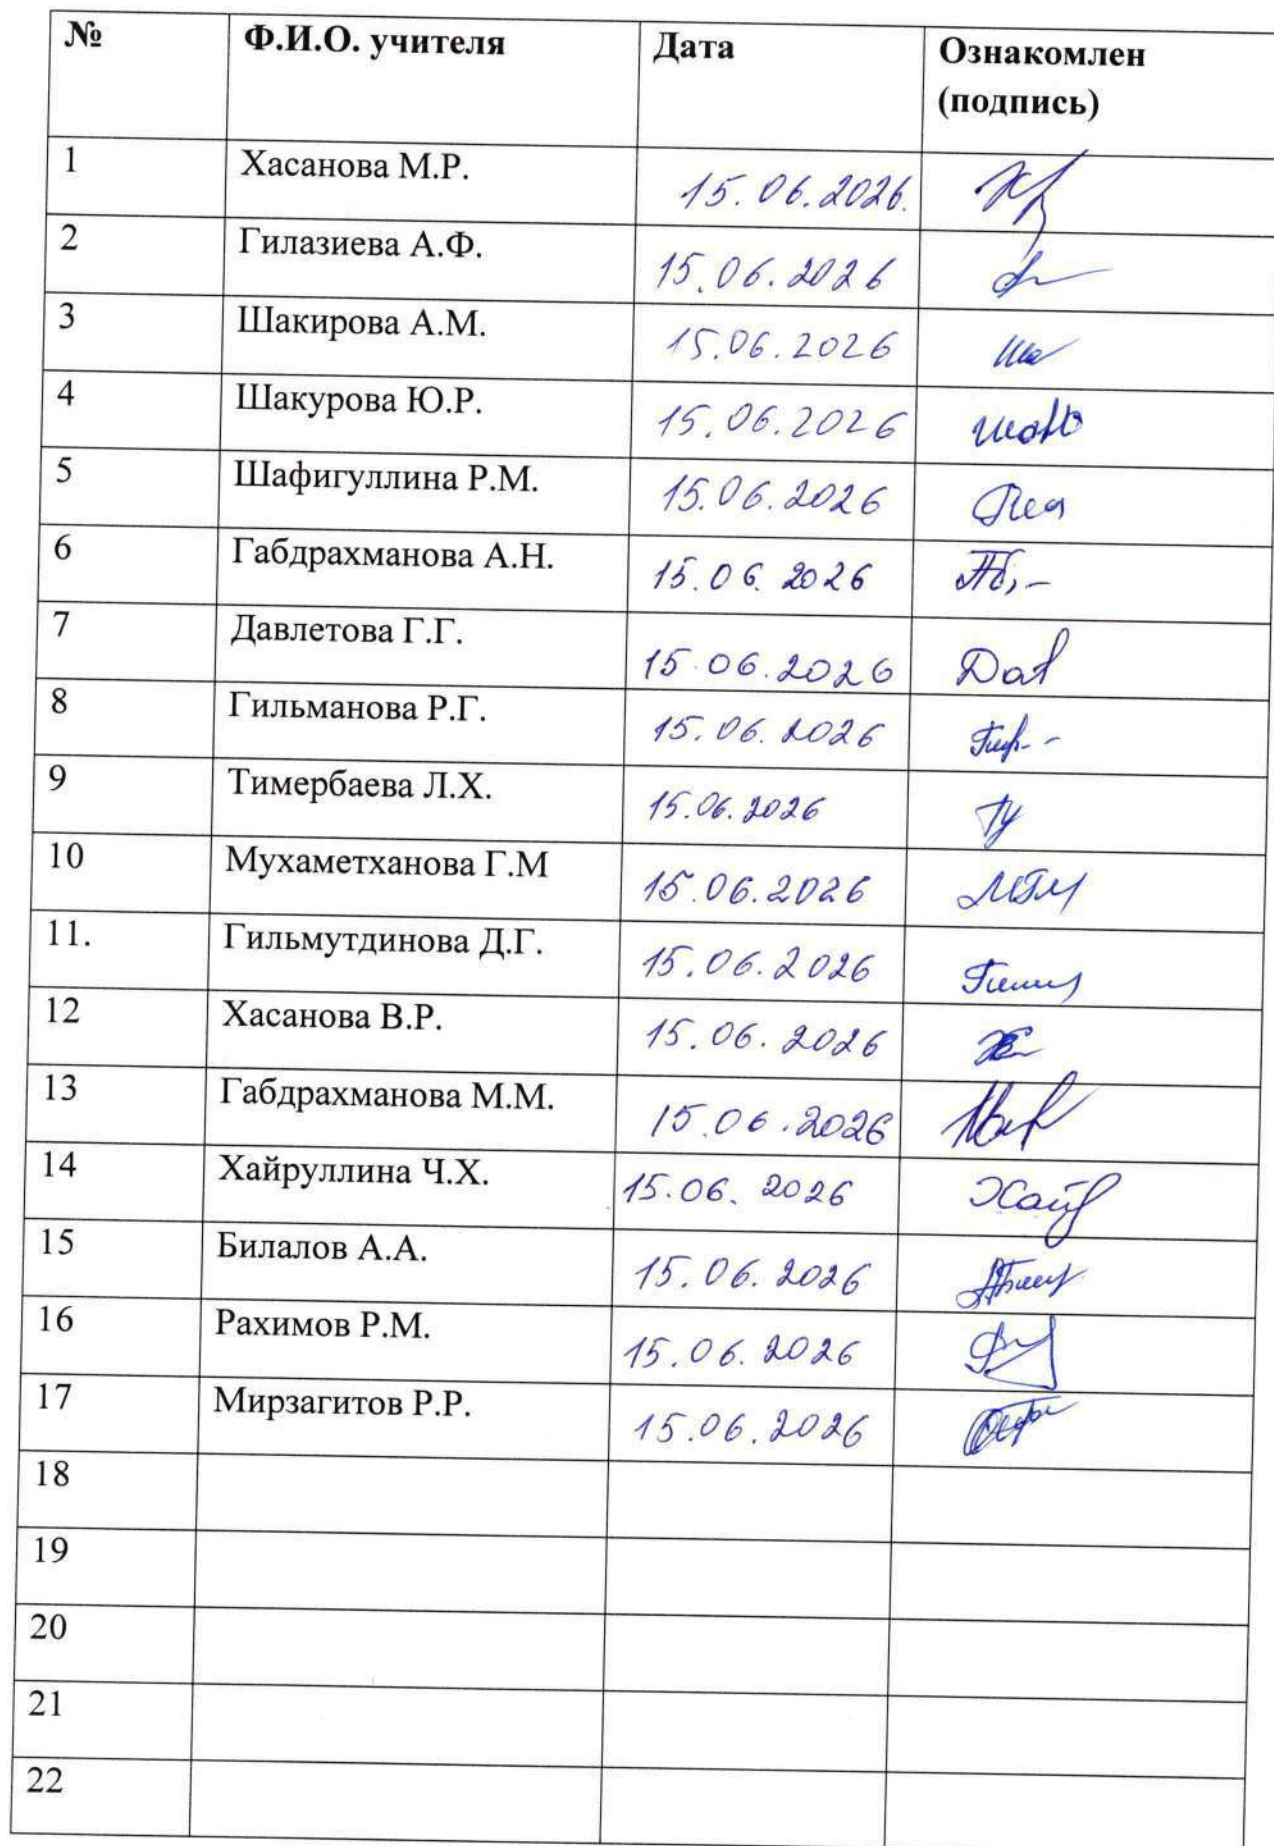 № Ф.И.О. учителя Дата Ознакомлен
(подпись)
1 Хасанова М.Р. 15.06.2026.
2 Гилазиева А.Ф. 15.06.2026
3 Шакирова А.М. 15.06.2026
4 Шакурова Ю.Р. 15.06.2026
5 Шафигуллина Р.М. 15.06.2026
6 Габдрахманова А.Н. 15.06.2026
7 Давлетова Г.Г. 15.06.2026
8 Гильманова Р.Г. 15.06.2026
9 Тимербаева Л.Х. 15.06.2026
10 Мухаметханова Г.М 15.06.2026
11. Гильмутдинова Д.Г. 15.06.2026
12 Хасанова В.Р. 15.06.2026
13 Габдрахманова М.М. 15.06.2026
14 Хайруллина Ч.Х. 15.06.2026
15 Билалов А.А. 15.06.2026
16 Рахимов Р.М. 15.06.2026
17 Мирзагитов Р.Р. 15.06.2026
18
19
20
21
22